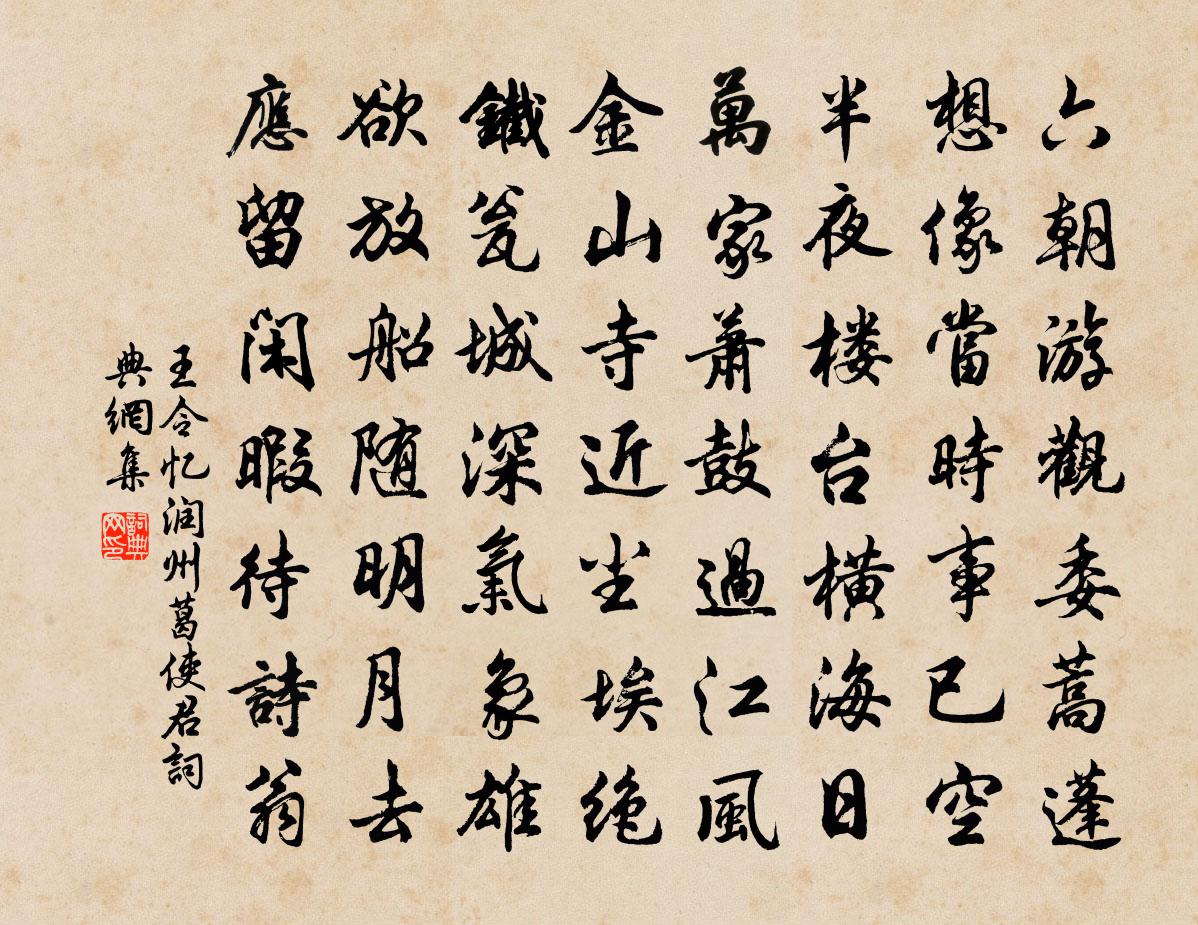 六朝游觀委蒿蓬
想像當時事已空
半夜楼台橫海日
萬家萧鼓過江風
金山寺近尘埃绝
鐵瓮城深氣象雄
欲放船随明月去
應留闲暇待詩翁
王令忆润州葛使君詞
典網集
詞典網印